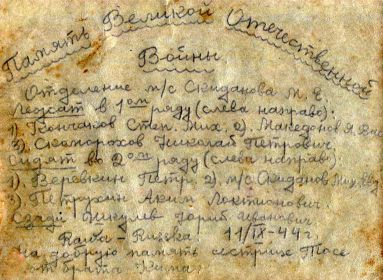 Память Великой Отечественной
Войны
Отделение м/с Скиданова М. Е.
Лежат в 1ом ряду (слева направо):
1). Кончаков Степ. Мих. 2). Македонов Я.
3). Скоморохов Николай Петрович.
Сидят во 2ом ряду (слева направо):
1). Верёвкин Петр. 2) м/с Скиданов Мих.
3). Петрухин Аким Локтионович
Сзади Пикулев Юрий Иванович
Рава-Русска. 11/IX-44 г.
На добрую память сестрице Тосе
от брата Кима.